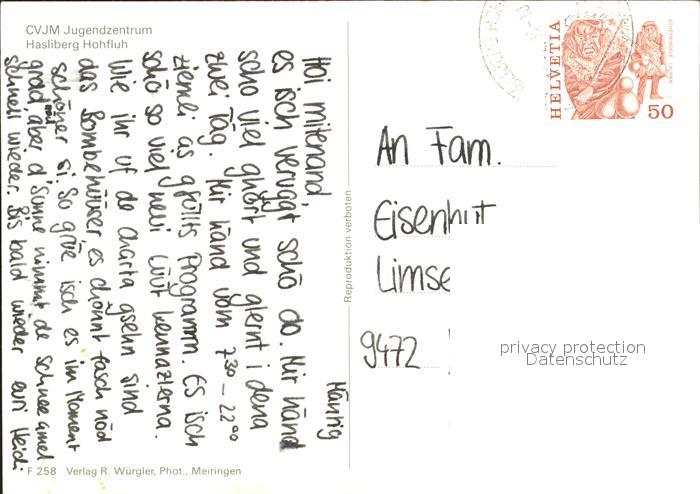 CVJM Jugendzentrum
Hasliberg Hohfluh
HELVETIA
50
An Fam.
Eisenhut
Limse
9472
privacy protection
Datenschutz
Reproduktion verboten
Mäntig
Hoi mitenand,
es isch veruggt schö da. Mir händ
scho viel ghört und glernt i dena
zwei Täg. Mir händ vom 7³⁰ – 22⁰⁰
ziemli äs gfüllts Programm. Es isch
schö so viel neui Lüüt kennazlerna.
Wie ihr uf de Charta gsehn sind
das Bombehüüser, es chönnt fasch nöd
schöner si. So grüe isch es im Moment
grad nöd, aber d'Sunne nimmt de Schnee amel
schnell wieder. Bis bald wieder euri Heidi.
F 258 Verlag R. Würgler, Phot., Meiringen